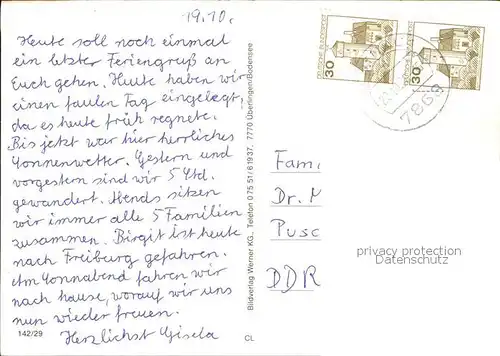 19.10.
Heute soll noch einmal
ein letzter Feriengruß an
Euch gehen. Heute haben wir
einen faulen Tag eingelegt,
da es heute früh regnete.
Bis jetzt war hier herrliches
Sonnenwetter. Gestern und
vorgestern sind wir 5 Std.
gewandert. Abends sitzen
wir immer alle 5 Familien
zusammen. Birgit ist heute
nach Freiburg gefahren.
Am Sonnabend fahren wir
nach hause, worauf wir uns
nun wieder freuen.
Herzlichst Gisela
142/29
CL
Bildverlag Werner KG., Telefon 0 75 51/6 19 37, 7770 Überlingen/Bodensee
DEUTSCHE BUNDESPOST
30
DEUTSCHE BUNDESPOST
30
7868
Fam.
Dr. M
Pusc
DDR
privacy protection
Datenschutz